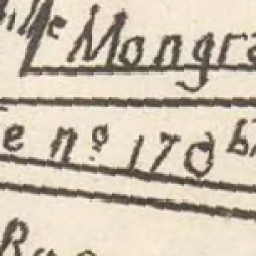 lle Mongra
e nº 178 bi